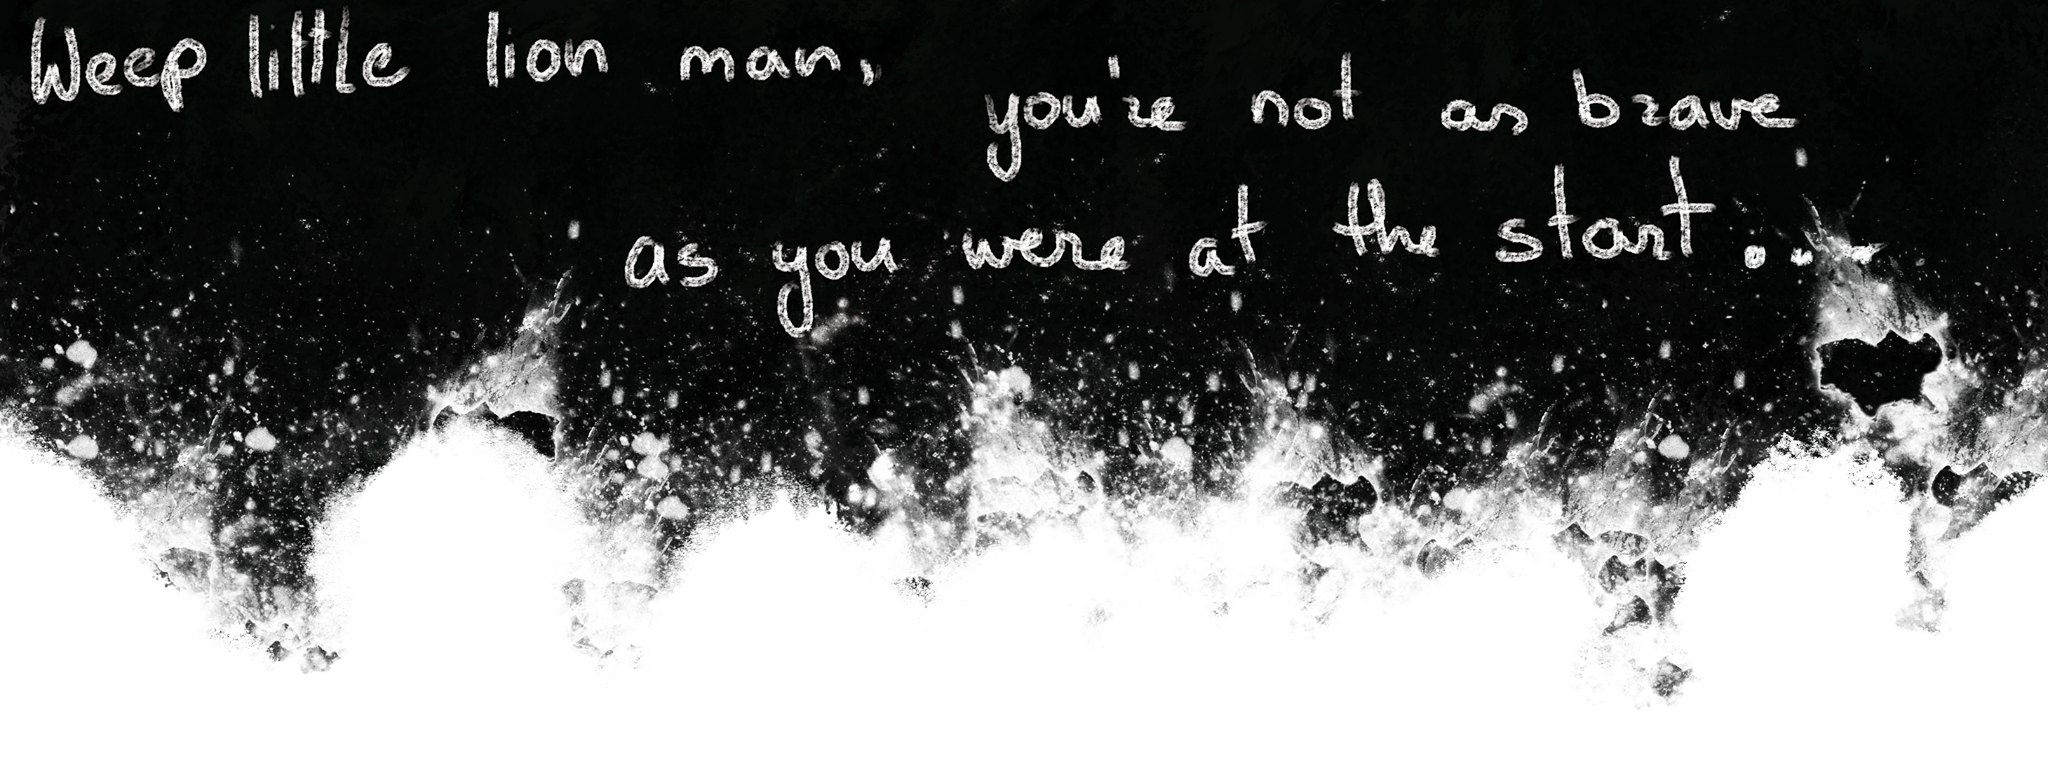 Weep little lion man,
you're not as brave
as you were at the start...